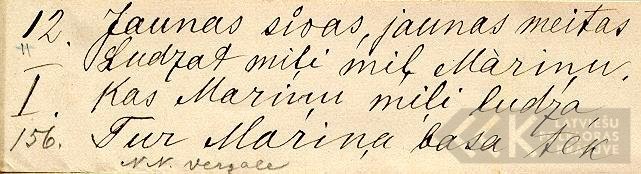 12. Jaunas sivas, jaunas meitas
"
Ludzat miļi miļ Màriņu,
I. Kas Mariņu miļi ludza
156. Tur Mariņa basa tek
N. N. Vergale
LATVIEŠU
FOLKLORAS
KRĀTUVE